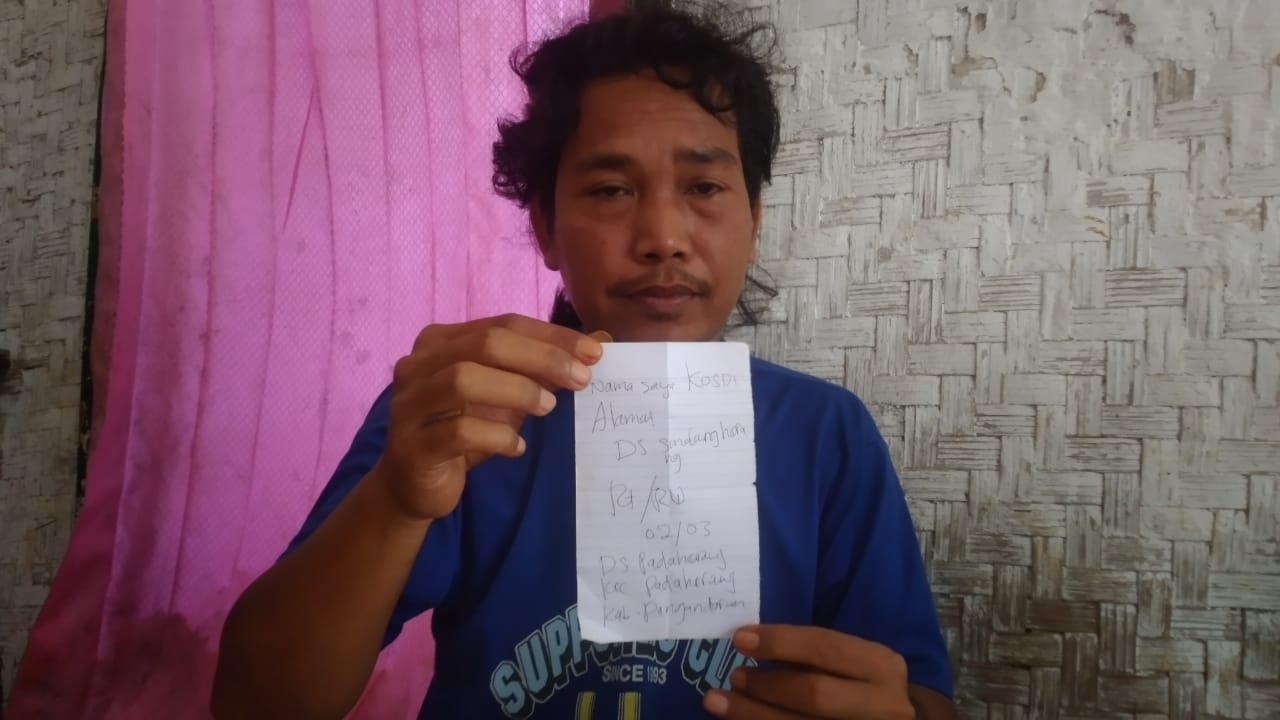 Nama saya KOSDI
Alamat
DS Sindanghera
ng
Rt/RW
02/03
DS Padaherang
kec Padaherang
kab. Pangandaran
SINCE 1893